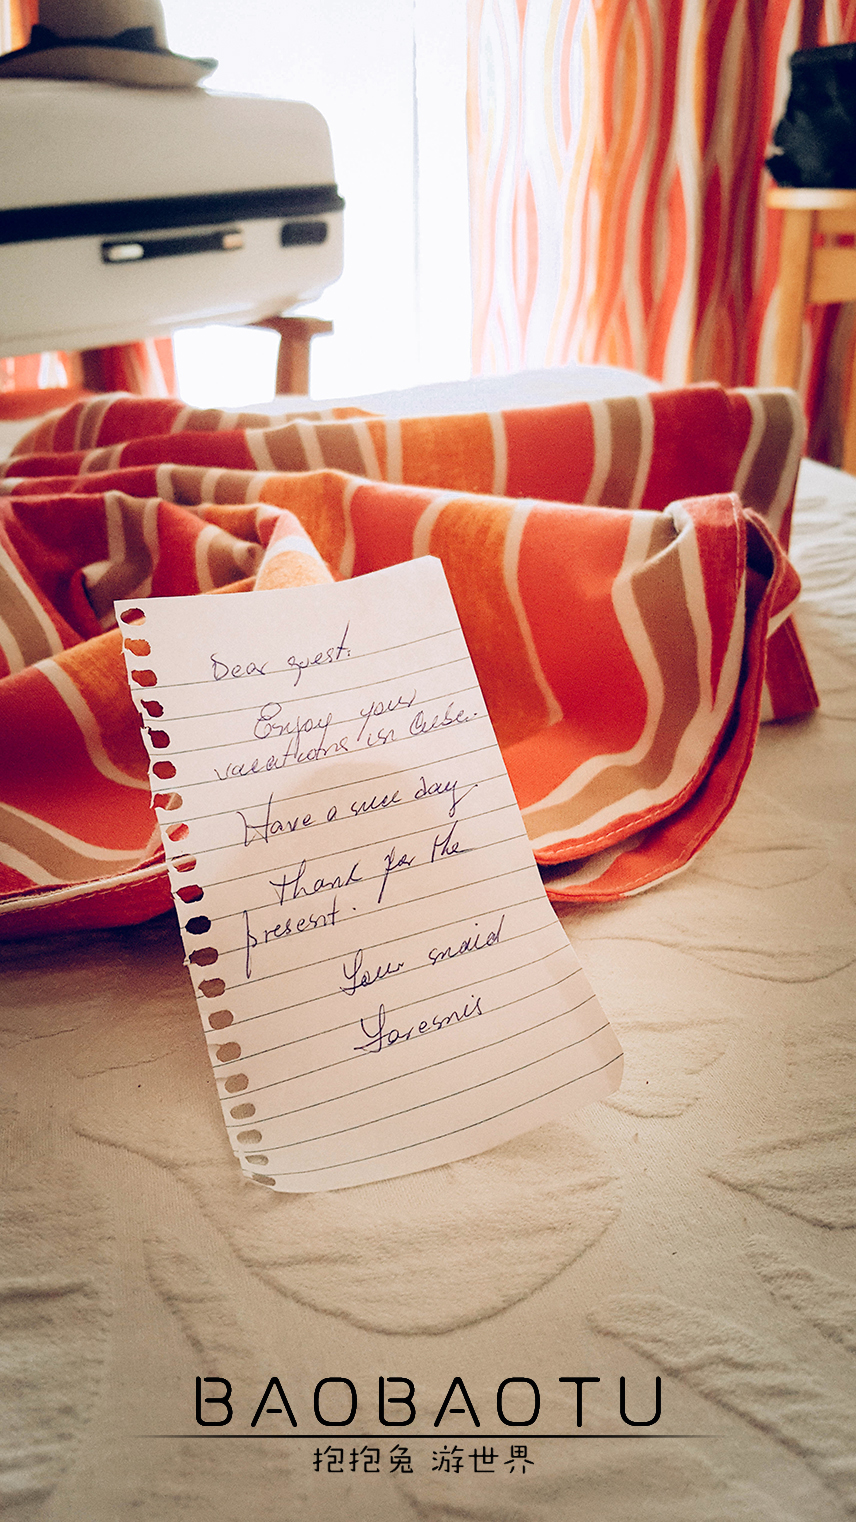 Dear guest:
Enjoy your
vacations in Cuba.
Have a nice day
thank for the
present.
Your maid
Yaresmis
BAOBAOTU
抱抱兔 游世界